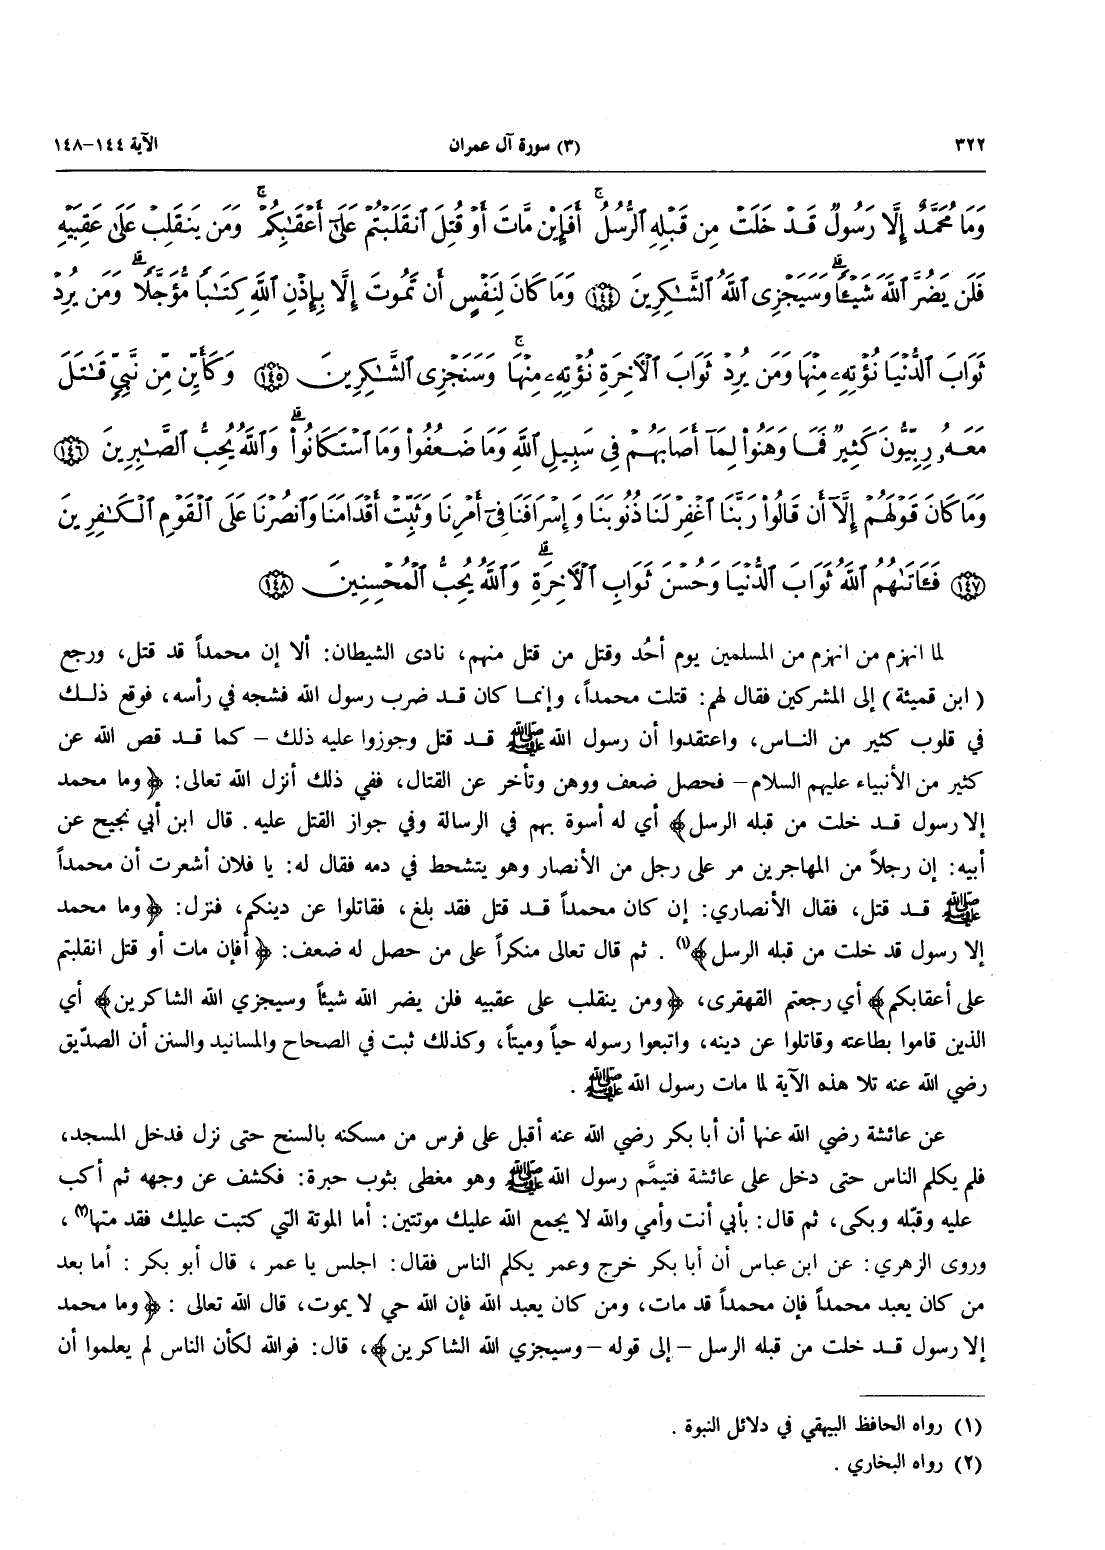 ٣٢٢ (٣) سورة آل عمران الآية ١٤٤-١٤٨
وَمَا مُحَمَّدٌ إِلَّا رَسُولٌ قَدْ خَلَتْ مِن قَبْلِهِ ٱلرُّسُلُ ۚ أَفَإِيْن مَّاتَ أَوْ قُتِلَ ٱنقَلَبْتُمْ عَلَىٰٓ أَعْقَـٰبِكُمْ ۚ وَمَن يَنقَلِبْ عَلَىٰ عَقِبَيْهِ
فَلَن يَضُرَّ ٱللَّهَ شَيْـًٔا ۗ وَسَيَجْزِى ٱللَّهُ ٱلشَّـٰكِرِينَ ١٤٤ وَمَا كَانَ لِنَفْسٍ أَن تَمُوتَ إِلَّا بِإِذْنِ ٱللَّهِ كِتَـٰبًا مُّؤَجَّلًا ۗ وَمَن يُرِدْ
ثَوَابَ ٱلدُّنْيَا نُؤْتِهِۦ مِنْهَا وَمَن يُرِدْ ثَوَابَ ٱلْـَٔاخِرَةِ نُؤْتِهِۦ مِنْهَا ۚ وَسَنَجْزِى ٱلشَّـٰكِرِينَ ١٤٥ وَكَأَيِّن مِّن نَّبِىٍّ قَـٰتَلَ
مَعَهُۥ رِبِّيُّونَ كَثِيرٌ فَمَا وَهَنُوا۟ لِمَآ أَصَابَهُمْ فِى سَبِيلِ ٱللَّهِ وَمَا ضَعُفُوا۟ وَمَا ٱسْتَكَانُوا۟ ۗ وَٱللَّهُ يُحِبُّ ٱلصَّـٰبِرِينَ ١٤٦
وَمَا كَانَ قَوْلَهُمْ إِلَّآ أَن قَالُوا۟ رَبَّنَا ٱغْفِرْ لَنَا ذُنُوبَنَا وَإِسْرَافَنَا فِىٓ أَمْرِنَا وَثَبِّتْ أَقْدَامَنَا وَٱنصُرْنَا عَلَى ٱلْقَوْمِ ٱلْكَـٰفِرِينَ
١٤٧ فَـَٔاتَىٰهُمُ ٱللَّهُ ثَوَابَ ٱلدُّنْيَا وَحُسْنَ ثَوَابِ ٱلْـَٔاخِرَةِ ۗ وَٱللَّهُ يُحِبُّ ٱلْمُحْسِنِينَ ١٤٨
لما انهزم من انهزم من المسلمين يوم أحُد وقتل من قتل منهم، نادى الشيطان: ألا إن محمداً قد قتل، ورجع
( ابن قميئة ) إلى المشركين فقال لهم: قتلت محمداً، وإنما كان قد ضرب رسول الله فشجه في رأسه، فوقع ذلك
في قلوب كثير من الناس، واعتقدوا أن رسول الله ﷺ قد قتل وجوزوا عليه ذلك - كما قد قص الله عن
كثير من الأنبياء عليهم السلام - فحصل ضعف ووهن وتأخر عن القتال، ففي ذلك أنزل الله تعالى: ﴿ وما محمد
إلا رسول قد خلت من قبله الرسل ﴾ أي له أسوة بهم في الرسالة وفي جواز القتل عليه. قال ابن أبي نجيح عن
أبيه: إن رجلاً من المهاجرين مر على رجل من الأنصار وهو يتشحط في دمه فقال له: يا فلان أشعرت أن محمداً
ﷺ قد قتل، فقال الأنصاري: إن كان محمداً قد قتل فقد بلغ، فقاتلوا عن دينكم، فنزل: ﴿ وما محمد
إلا رسول قد خلت من قبله الرسل ﴾(١) . ثم قال تعالى منكراً على من حصل له ضعف: ﴿ أفإن مات أو قتل انقلبتم
على أعقابكم ﴾ أي رجعتم القهقرى، ﴿ ومن ينقلب على عقبيه فلن يضر الله شيئاً وسيجزي الله الشاكرين ﴾ أي
الذين قاموا بطاعته وقاتلوا عن دينه، واتبعوا رسوله حياً وميتاً، وكذلك ثبت في الصحاح والمسانيد والسنن أن الصدّيق
رضي الله عنه تلا هذه الآية لما مات رسول الله ﷺ .
عن عائشة رضي الله عنها أن أبا بكر رضي الله عنه أقبل على فرس من مسكنه بالسنح حتى نزل فدخل المسجد،
فلم يكلم الناس حتى دخل على عائشة فتيمَّم رسول الله ﷺ وهو مغطى بثوب حبرة: فكشف عن وجهه ثم أكب
عليه وقبّله وبكى، ثم قال: بأبي أنت وأمي والله لا يجمع الله عليك موتتين: أما الموتة التي كتبت عليك فقد متها(٢) ،
وروى الزهري: عن ابن عباس أن أبا بكر خرج وعمر يكلم الناس فقال: اجلس يا عمر ، قال أبو بكر : أما بعد
من كان يعبد محمداً فإن محمداً قد مات، ومن كان يعبد الله فإن الله حي لا يموت، قال الله تعالى : ﴿ وما محمد
إلا رسول قد خلت من قبله الرسل - إلى قوله - وسيجزي الله الشاكرين ﴾، قال: فوالله لكأن الناس لم يعلموا أن
(١) رواه الحافظ البيهقي في دلائل النبوة .
(٢) رواه البخاري .